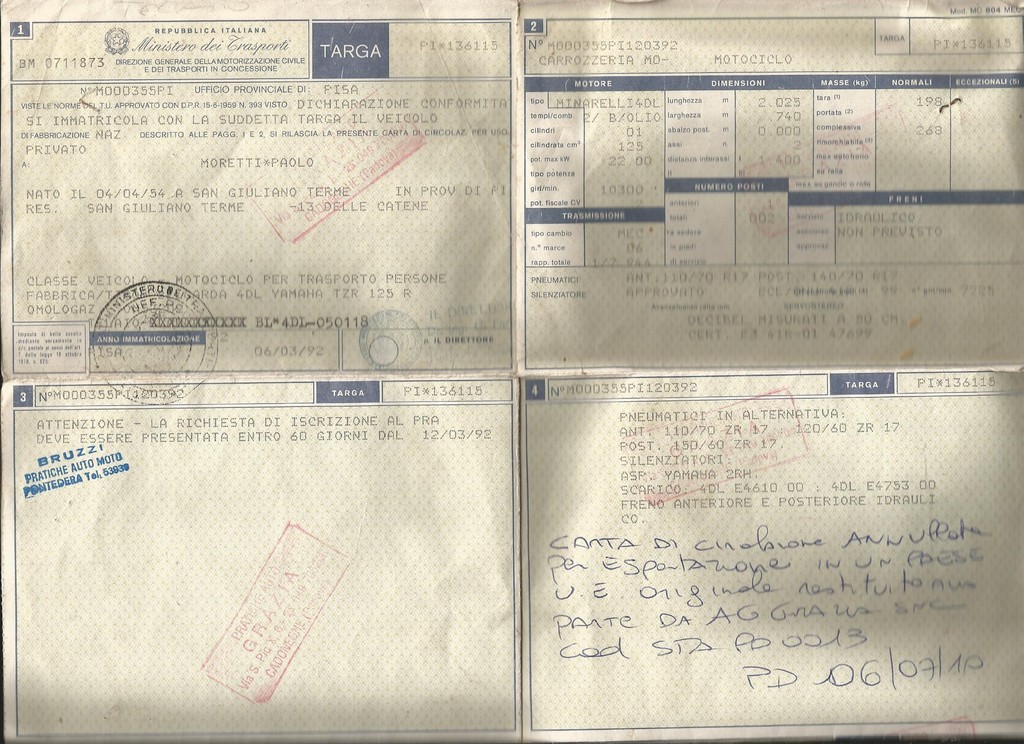 1
REPUBBLICA ITALIANA
Ministero dei Trasporti
DIREZIONE GENERALE DELLA MOTORIZZAZIONE CIVILE
E DEI TRASPORTI IN CONCESSIONE
BM 0711873
TARGA
PI*136115
N°M000355PI UFFICIO PROVINCIALE DI: PISA
VISTE LE NORME DEL T.U. APPROVATO CON D.P.R. 15-6-1959 N. 393 VISTO DICHIARAZIONE CONFORMITA
SI IMMATRICOLA CON LA SUDDETTA TARGA IL VEICOLO
DI FABBRICAZIONE NAZ. DESCRITTO ALLE PAGG. 1 E 2, SI RILASCIA LA PRESENTE CARTA DI CIRCOLAZ. PER USO
PRIVATO
A: MORETTI*PAOLO
NATO IL 04/04/54 A SAN GIULIANO TERME IN PROV DI PI
RES. SAN GIULIANO TERME -13 DELLE CATENE
CLASSE VEICOLO MOTOCICLO PER TRASPORTO PERSONE
FABBRICA/T ARDA 4DL YAMAHA TZR 125 R
OMOLOGAZ
XXXXXXXXXXX BL*4DL-050118
ANNO IMMATRICOLAZIONE
PISA 06/03/92
p. IL DIRETTORE
2
Mod. MC 804 MEC
N° M000355PI120392
TARGA
PI*136115
CARROZZERIA MO- MOTOCICLO
MOTORE
DIMENSIONI
MASSE (kg)
NORMALI
ECCEZIONALI (5)
tipo MINARELLI4DL lunghezza m 2.025 tara (1) 198
tempi/comb. 2/ B/OLIO larghezza m .740 portata (2)
cilindri 01 sbalzo post. m 0.000 complessiva 268
cilindrata cm³ 125 assi n. 2 rimorchiabile (3)
pot. max kW 22 00 distanza interassi I 1.400
tipo potenza II
giri/min. 10300
NUMERO POSTI
pot. fiscale CV anteriori 1
FRENI
TRASMISSIONE totali 002 servizio IDRAULICO
tipo cambio MEC soccorso NON PREVISTO
n.° marce 06 in piedi
rapp. totale
PNEUMATICI ANT.110/70 R17 POST.140/70 R17
SILENZIATORE APPROVATO
DECIBEL MISURATI A 50 CM.
3
N°M000355PI120392
TARGA
PI*136115
ATTENZIONE - LA RICHIESTA DI ISCRIZIONE AL PRA
DEVE ESSERE PRESENTATA ENTRO 60 GIORNI DAL 12/03/92
BRUZZI
PRATICHE AUTO MOTO
PONTEDERA Tel. 53939
GRAZIA
4
N°M000355PI120392
TARGA
PI*136115
PNEUMATICI IN ALTERNATIVA:
ANT. 110/70 ZR 17 : 120/60 ZR 17
POST. 150/60 ZR 17.
SILENZIATORI:
ASP. YAMAHA 2RH.
SCARICO: 4DL E4610 00 : 4DL E4753 00
FRENO ANTERIORE E POSTERIORE IDRAULI
CO.
CARTA DI circolazione ANNULLATA
per ESportazione IN UN PAESE
U.E. originale restituito
PARTE DA AG GRAZIA SNC
cod STA PD0013
PD 06/07/10